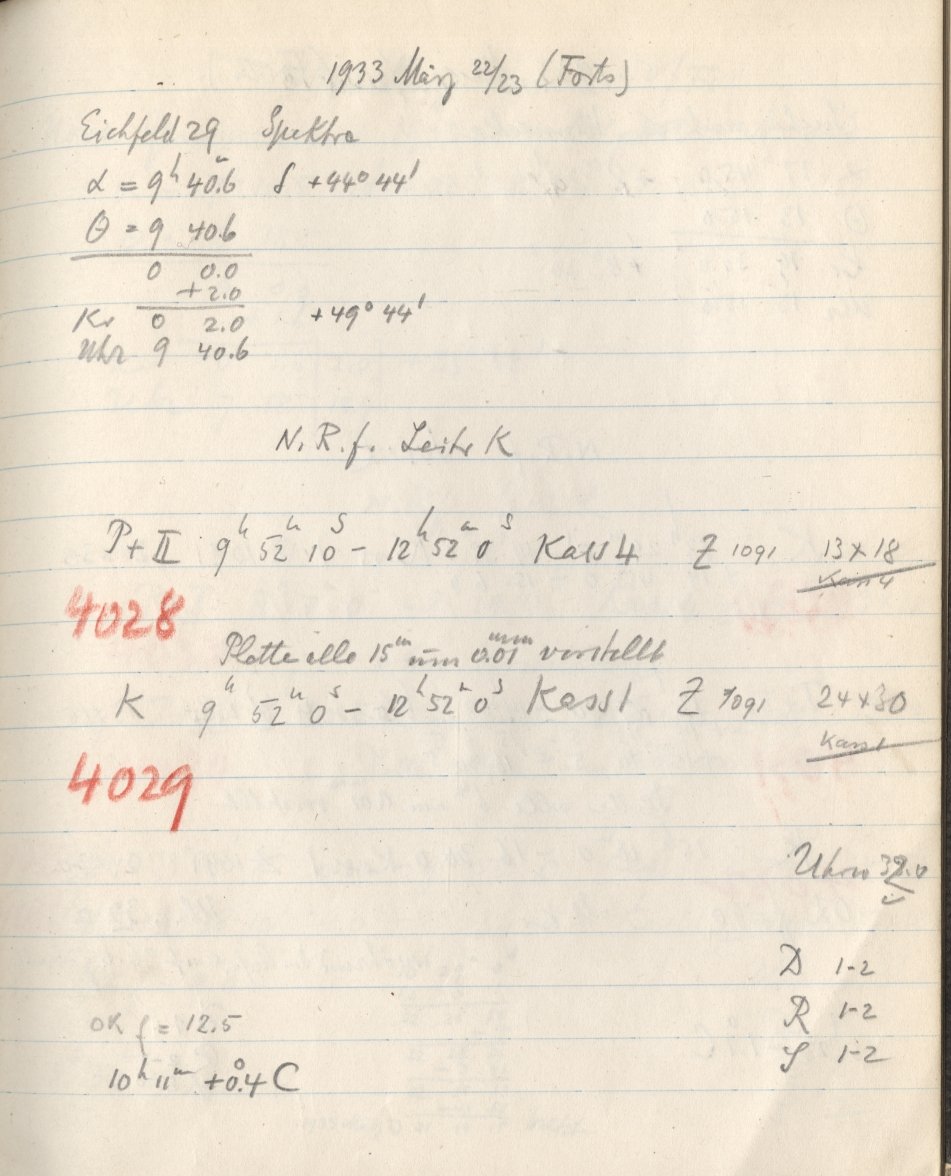 1933 März 22/23 (Forts)
Eichfeld 29 Spektra
α = 9h 40.6m δ +44° 44'
θ = 9 40.6
0 0.0
+2.0
Kr 0 2.0 +49° 44'
Uhr 9 40.6
N. R. f. Leitr K
P+ II 9h 52m 10s – 12h 52m 0s Kass 4 Z 1091 13 x 18
Kass 4
4028
Platte alle 15m um 0.01mm verstellt
K 9h 52m 0s – 12h 52m 0s Kass 1 Z 1091 24 x 30
Kass 1
4029
Uhren
D 1-2
OK f = 12.5 R 1-2
S 1-2
10h 11m +0.4° C